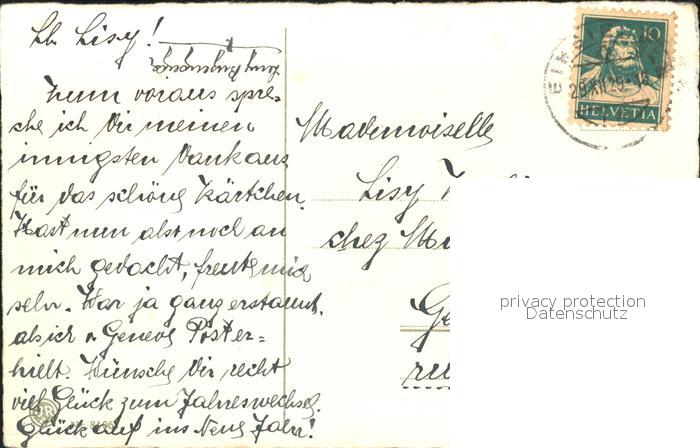 Lb. Lisy!
Zum voraus spre-
che ich Dir meinen
innigsten Dank aus
für das schöne Kärtchen.
Hast nun also noch an
mich gedacht, freute mich
sehr. War ja ganz erstaunt,
als ich v Genevé Post er=
hielt. Wünsche Dir recht
viel Glück zum Jahreswechsel.
Glück auf ins Neue Jahr!
Mademoiselle
Lisy
chez
10
HELVETIA
29.XII.29
privacy protection
Datenschutz